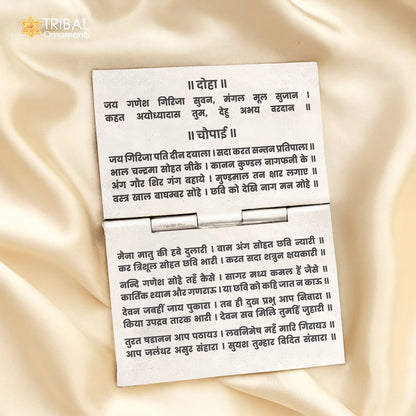 TRIBAL
Ornaments
॥ दोहा ॥
जय गणेश गिरिजा सुवन, मंगल मूल सुजान ।
कहत अयोध्यादास तुम, देहु अभय वरदान ॥
॥ चौपाई ॥
जय गिरिजा पति दीन दयाला । सदा करत सन्तन प्रतिपाला ॥
भाल चन्द्रमा सोहत नीके । कानन कुण्डल नागफनी के ॥
अंग गौर शिर गंग बहाये । मुण्डमाल तन क्षार लगाए ॥
वस्त्र खाल बाघम्बर सोहे । छवि को देखि नाग मन मोहे ॥
मैना मातु की हवे दुलारी । बाम अंग सोहत छवि न्यारी ॥
कर त्रिशूल सोहत छवि भारी । करत सदा शत्रुन क्षयकारी ॥
नन्दि गणेश सोहै तहँ कैसे । सागर मध्य कमल हैं जैसे ॥
कार्तिक श्याम और गणराऊ । या छवि को कहि जात न काऊ ॥
देवन जबहीं जाय पुकारा । तब ही दुख प्रभु आप निवारा ॥
किया उपद्रव तारक भारी । देवन सब मिलि तुमहिं जुहारी ॥
तुरत षडानन आप पठायउ । लवनिमेष महँ मारि गिरायउ ॥
आप जलंधर असुर संहारा । सुयश तुम्हार विदित संसारा ॥